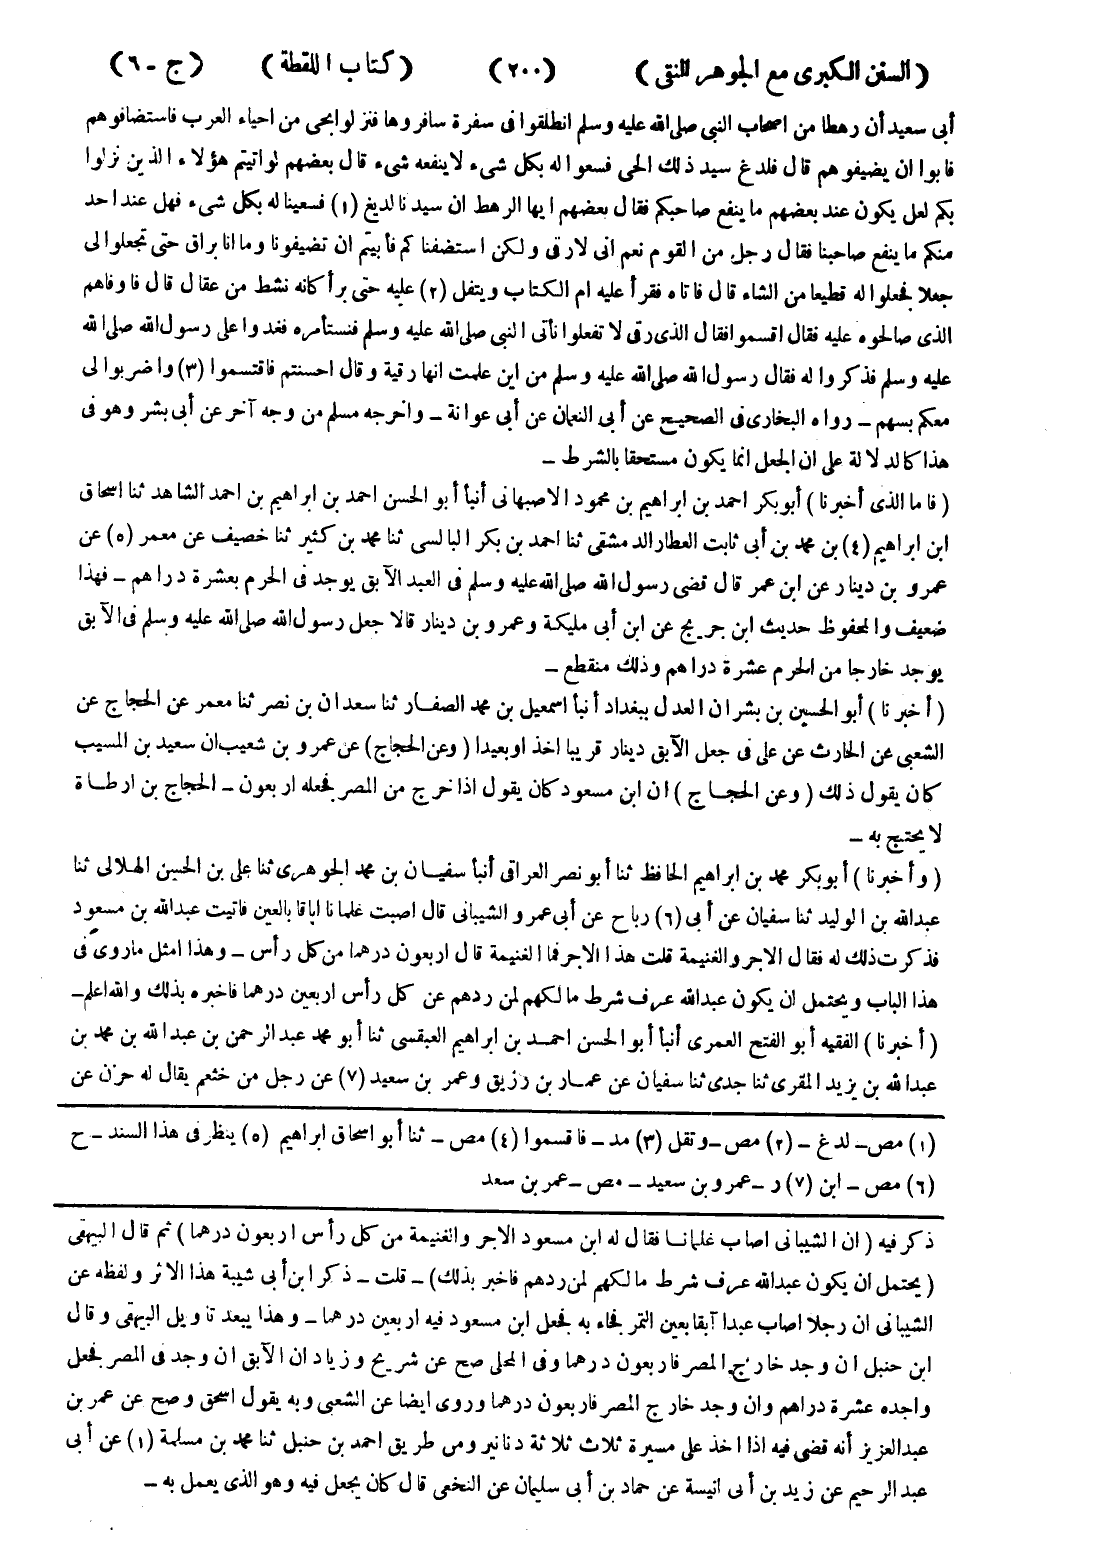 ( السنن الكبرى مع الجوهر النقى ) (٢٠٠) ( كتاب اللقطة ) (ج - ٦)
أبى سعيد أن رهطا من اصحاب النبى صلى الله عليه وسلم انطلقوا فى سفرة سافروها فنزلوا بحى من احياء العرب فاستضافوهم
فابوا ان يضيفوهم قال فلدغ سيد ذلك الحى فسعوا له بكل شىء لا ينفعه شىء قال بعضهم لو اتيتم هؤلاء الذين نزلوا
بكم لعل يكون عند بعضهم ما ينفع صاحبكم فقال بعضهم ايها الرهط ان سيدنا لديغ (١) فسعينا له بكل شىء فهل عند احد
منكم ما ينفع صاحبنا فقال رجل من القوم نعم انى لارقى ولكن استضفناكم فأبيتم ان تضيفونا وما انا براق حتى تجعلوا لى
جعلا فجعلوا له قطيعا من الشاء قال فاتاه فقرأ عليه ام الكتاب ويتفل (٢) عليه حتى برأ كانه نشط من عقال قال فاوفاهم
الذى صالحوه عليه فقال اقتسموا فقال الذى رقى لا تفعلوا نأتى النبى صلى الله عليه وسلم فنستأمره فغدوا على رسول الله صلى الله
عليه وسلم فذكروا له فقال رسول الله صلى الله عليه وسلم من اين علمت انها رقية وقال احسنتم فاقتسموا (٣) واضربوا لى
معكم بسهم ــ رواه البخارى فى الصحيح عن أبى النعمان عن أبى عوانة ــ واخرجه مسلم من وجه آخر عن أبى بشر وهو فى
هذا كالدلالة على ان الجعل انما يكون مستحقا بالشرط ــ
( فاما الذى أخبرنا ) أبو بكر احمد بن ابراهيم بن محمود الاصبهانى أنبأ أبو الحسن احمد بن ابراهيم بن احمد الشاهد ثنا اسحاق
ابن ابراهيم (٤) بن محمد بن أبى ثابت العطار الدمشقى ثنا احمد بن بكر البالسى ثنا محمد بن كثير ثنا خصيف عن معمر (٥) عن
عمرو بن دينار عن ابن عمر قال قضى رسول الله صلى الله عليه وسلم فى العبد الآبق يوجد فى الحرم بعشرة دراهم ــ فهذا
ضعيف والمحفوظ حديث ابن جريج عن ابن أبى مليكة وعمرو بن دينار قالا جعل رسول الله صلى الله عليه وسلم فى الآبق
يوجد خارجا من الحرم عشرة دراهم وذلك منقطع ــ
( أخبرنا ) أبو الحسين بن بشران العدل ببغداد أنبأ اسمعيل بن محمد الصفار ثنا سعدان بن نصر ثنا معمر عن الحجاج عن
الشعبى عن الحارث عن على فى جعل الآبق دينار قريبا اخذ او بعيدا ( وعن الحجاج ) عن عمرو بن شعيب ان سعيد بن المسيب
كان يقول ذلك ( وعن الحجاج ) ان ابن مسعود كان يقول اذا خرج من المصر فجعله اربعون ــ الحجاج بن ارطاة
لا يحتج به ــ
( وأخبرنا ) أبو بكر محمد بن ابراهيم الحافظ ثنا أبو نصر العراقى أنبأ سفيان بن محمد الجوهرى ثنا على بن الحسن الهلالى ثنا
عبدالله بن الوليد ثنا سفيان عن أبى (٦) رباح عن أبى عمرو الشيبانى قال اصبت غلمانا اباقا بالعين فاتيت عبدالله بن مسعود
فذكرت ذلك له فقال الاجر والغنيمة قلت هذا الاجر فما الغنيمة قال اربعون درهما من كل رأس ــ وهذا امثل ما روى فى
هذا الباب ويحتمل ان يكون عبدالله عرف شرط مالكهم لمن ردهم عن كل رأس اربعين درهما فاخبره بذلك والله اعلم ــ
( أخبرنا ) الفقيه أبو الفتح العمرى أنبأ أبو الحسن احمد بن ابراهيم العبقسى ثنا أبو محمد عبد الرحمن بن عبدالله بن محمد بن
عبدالله بن يزيد المقرى ثنا جدى ثنا سفيان عن عمار بن رزيق وعمر بن سعيد (٧) عن رجل من خثعم يقال له حزن عن
(١) مص ــ لدغ ــ (٢) مص ــ وتفل (٣) مد ــ فاقسموا (٤) مص ــ ثنا أبو اسحاق ابراهيم (٥) ينظر فى هذا السند ــ ح
(٦) مص ــ ابن (٧) ر ــ عمرو بن سعيد ــ مص ــ عمر بن سعد
ذكر فيه ( ان الشيبانى اصاب غلمانا فقال له ابن مسعود الاجر والغنيمة من كل رأس اربعون درهما ) ثم قال البيهقى
( يحتمل ان يكون عبدالله عرف شرط مالكهم لمن ردهم فاخبر بذلك ) ــ قلت ــ ذكر ابن أبى شيبة هذا الاثر ولفظه عن
الشيبانى ان رجلا اصاب عبدا آبقا بعين التمر فجاء به فجعل ابن مسعود فيه اربعين درهما ــ وهذا يبعد تاويل البيهقى وقال
ابن حنبل ان وجد خارج المصر فاربعون درهما وفى المحلى صح عن شريح وزياد ان الآبق ان وجد فى المصر فجعل
واجده عشرة دراهم وان وجد خارج المصر فاربعون درهما وروى ايضا عن الشعبى وبه يقول اسحق وصح عن عمر بن
عبدالعزيز أنه قضى فيه اذا اخذ على مسيرة ثلاث ثلاثة دنانير ومن طريق احمد بن حنبل ثنا محمد بن مسلمة (١) عن أبى
عبد الرحيم عن زيد بن أبى انيسة عن حماد بن أبى سليمان عن النخعى قال كان يجعل فيه وهو الذى يعمل به ــ